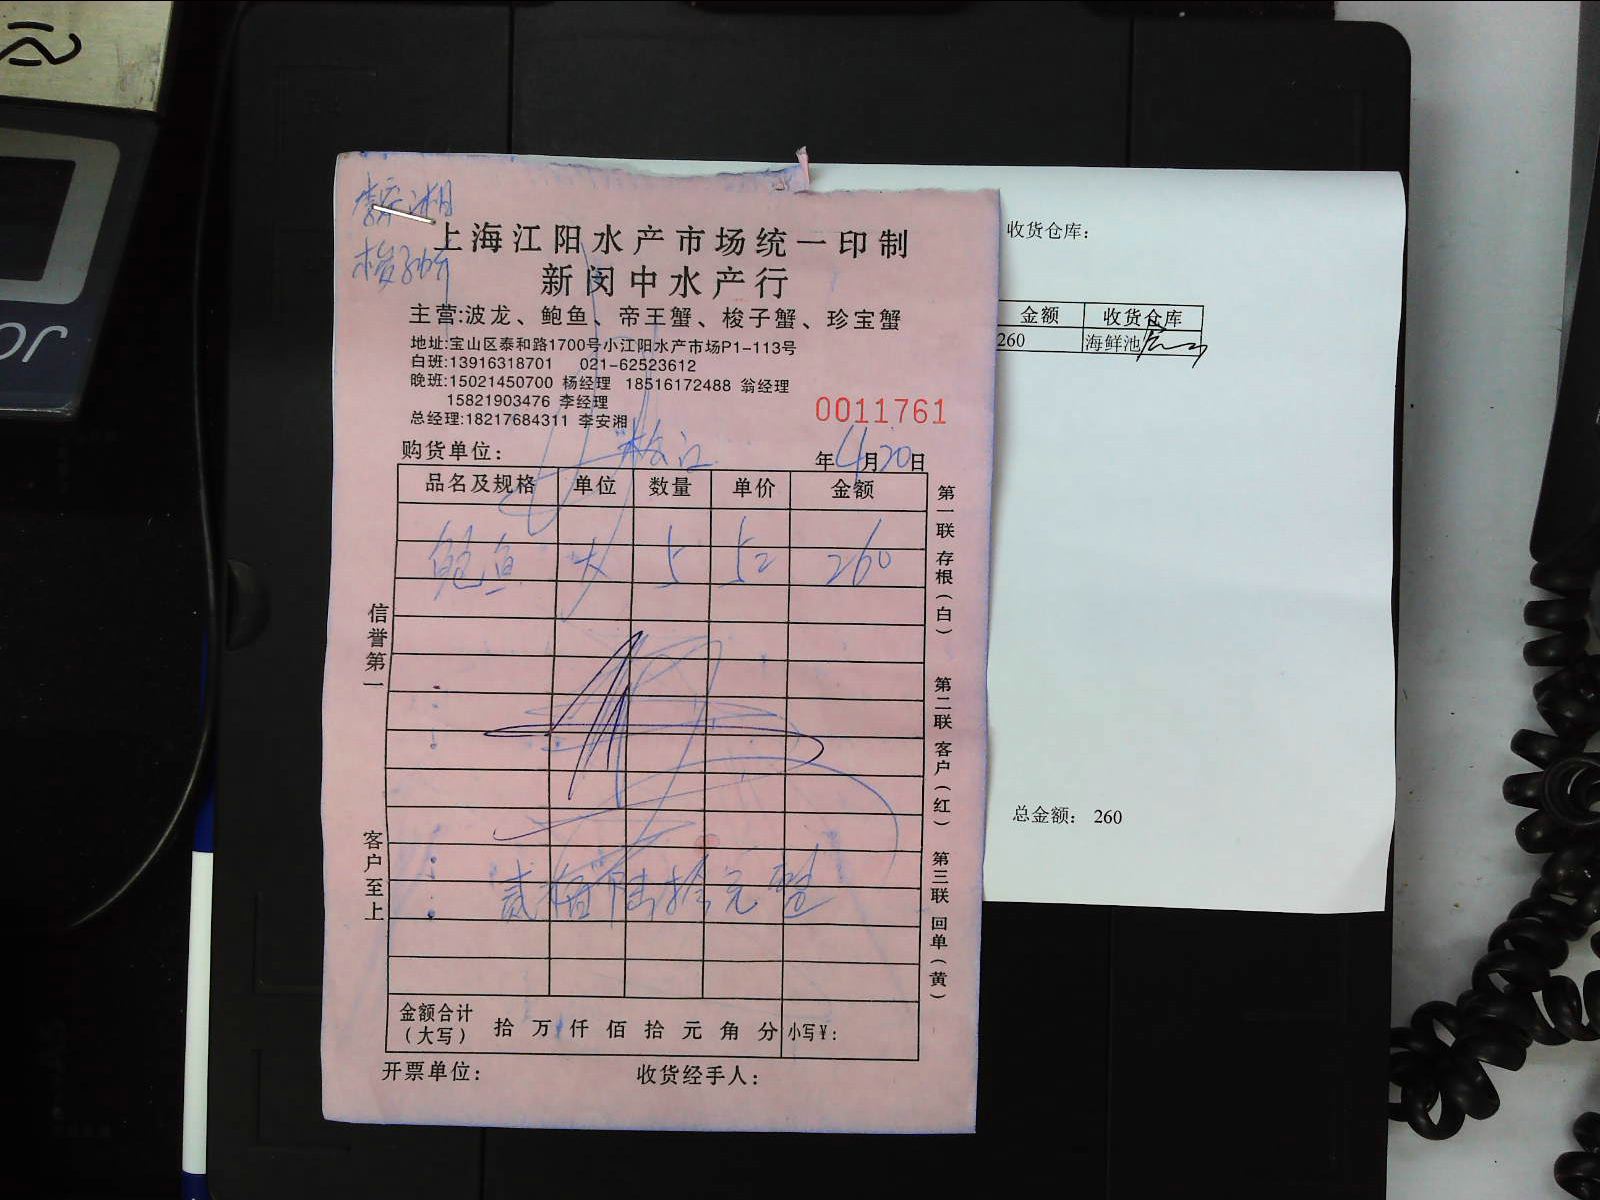 李安湘
梭子蟹
上海江阳水产市场统一印制
新闵中水产行
主营:波龙、鲍鱼、帝王蟹、梭子蟹、珍宝蟹
地址:宝山区泰和路1700号小江阳水产市场P1-113号
白班:13916318701 021-62523612
晚班:15021450700 杨经理 18516172488 翁经理
15821903476 李经理
总经理:18217684311 李安湘
0011761
购货单位: 年4月20日
品名及规格 单位 数量 单价 金额
鲍鱼 大 5 52 260
贰佰陆拾元整
金额合计
(大写) 拾 万 仟 佰 拾 元 角 分 小写¥:
开票单位: 收货经手人:
信誉第一
客户至上
第一联 存根(白)
第二联 客户(红)
第三联 回单(黄)
收货仓库:
金额 收货仓库
260 海鲜池
总金额: 260